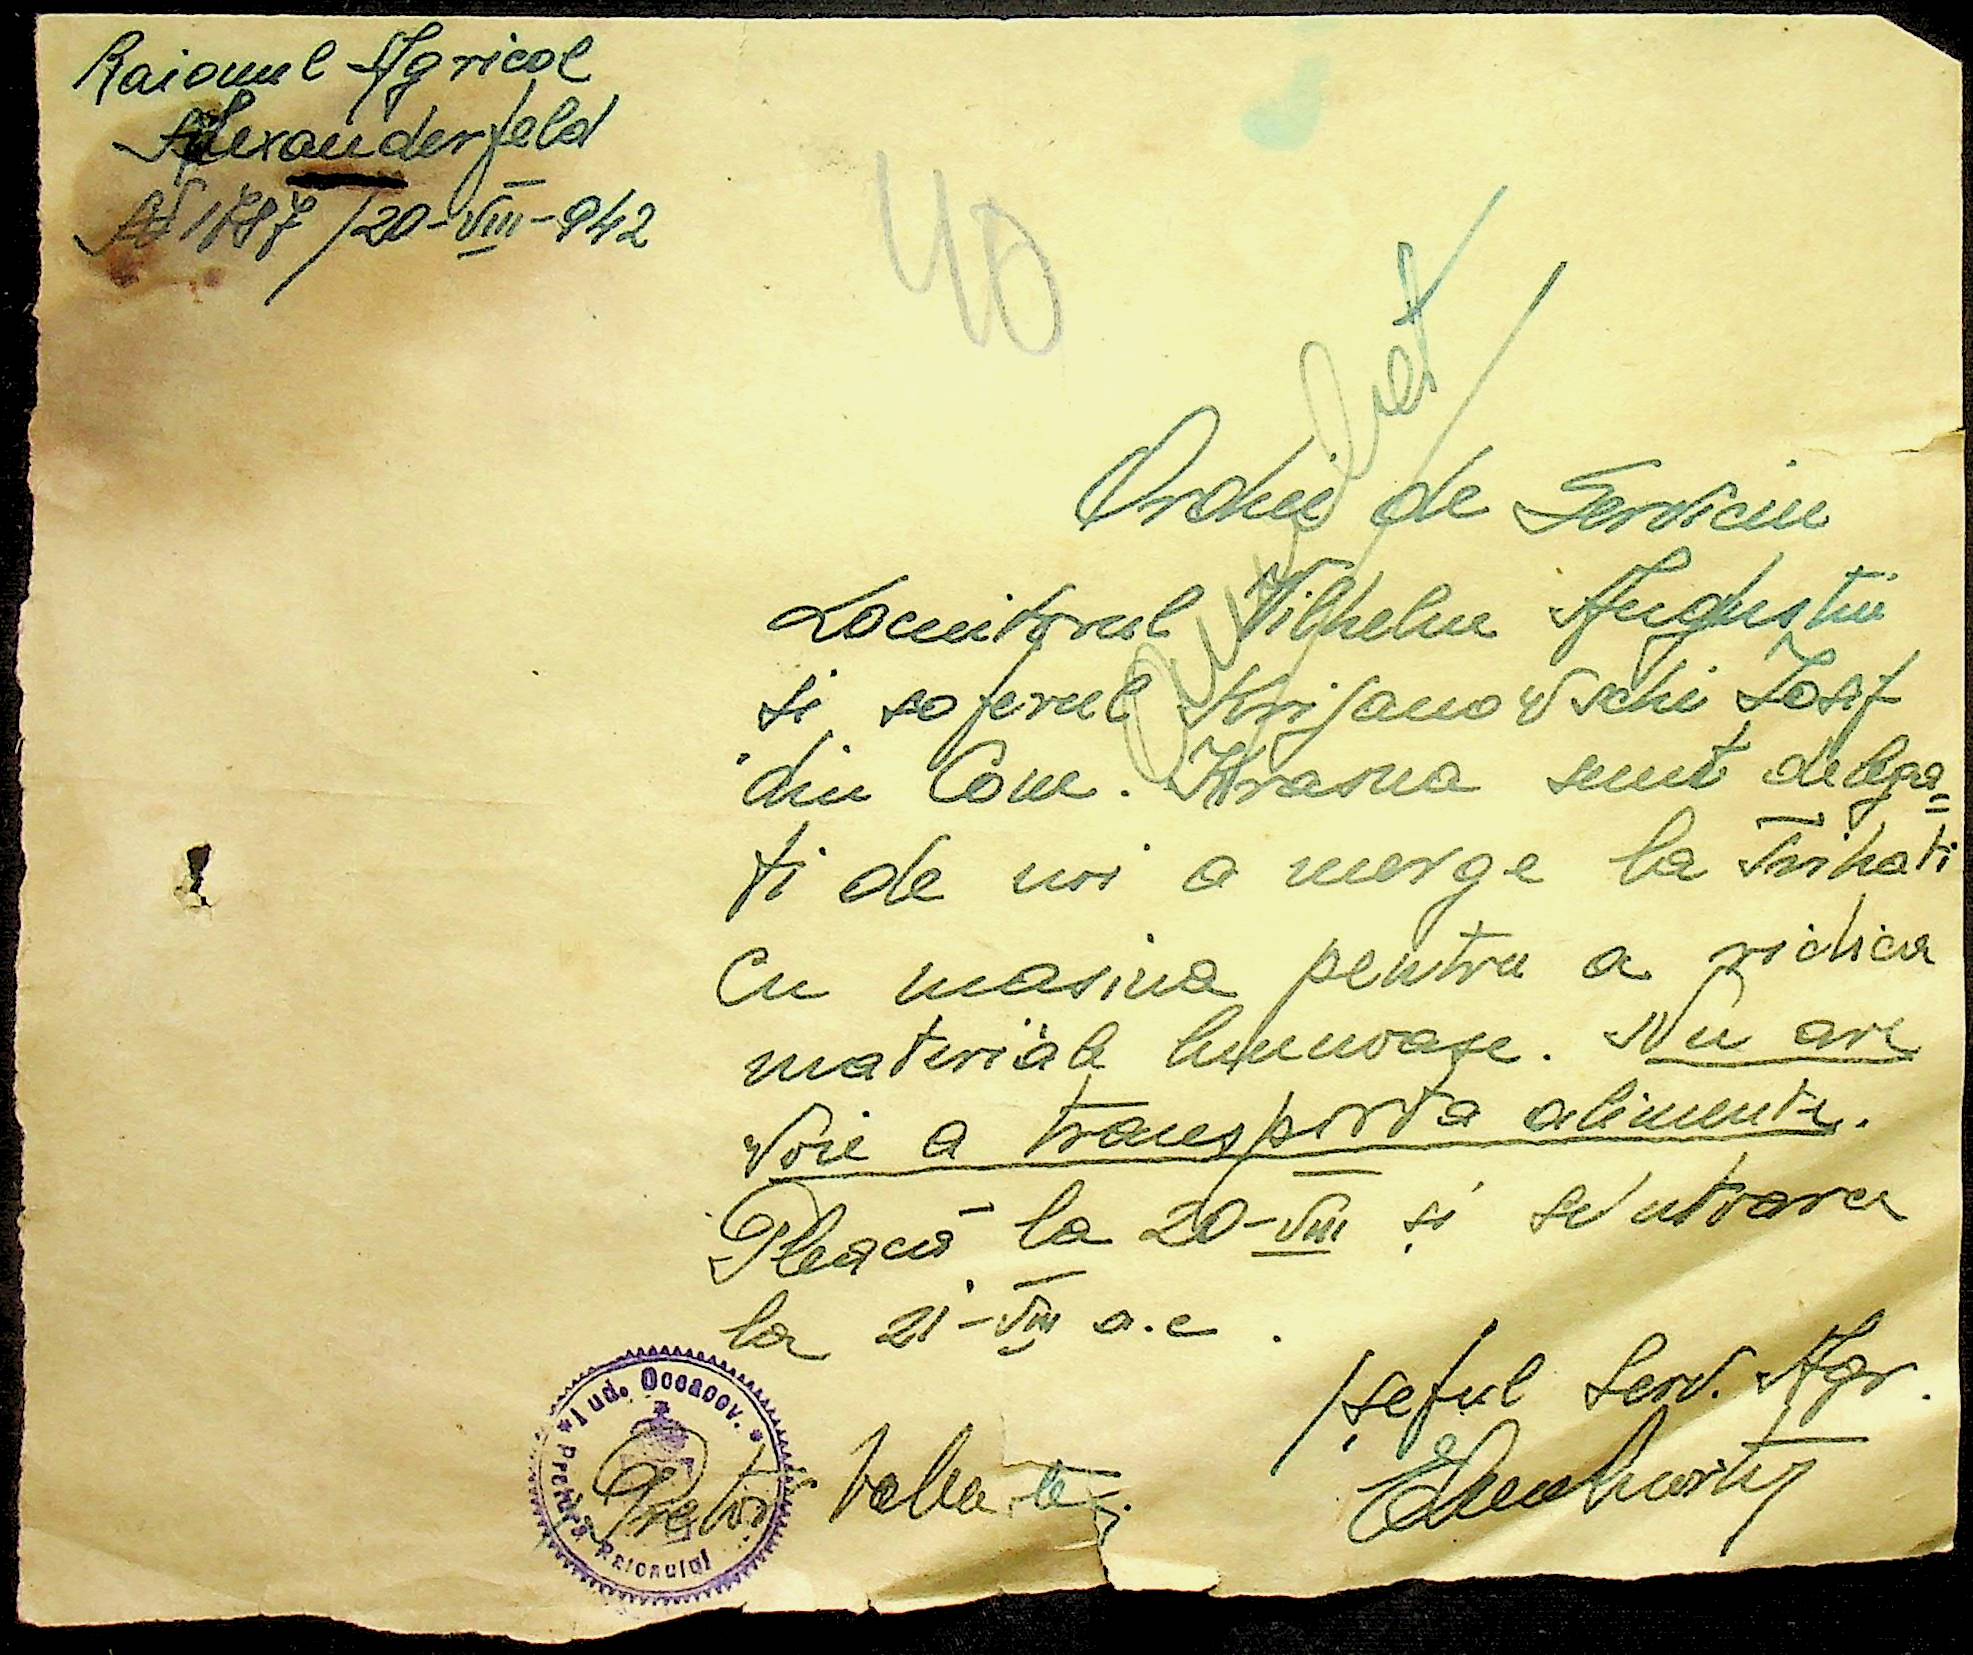 Raionul Agricol
Alexanderfeld
No 1787/20-VIII-942
40
Ordin de Serviciu
Locuitorul Vilhelm Augustin
si soferul Krijanovschi Iosif
din Com. Krasna sunt delega=
ti de noi a merge la Trihati
cu masina pentru a ridica
materiale lemnoase. Nu are
voie a transporta alimente.
Pleacă la 20-VIII și se'ntoarce
la 21-VIII a.c.
/ șeful Serv. Agr.
Pretor
* Jud. Oceacov. *
Pretura Raionului